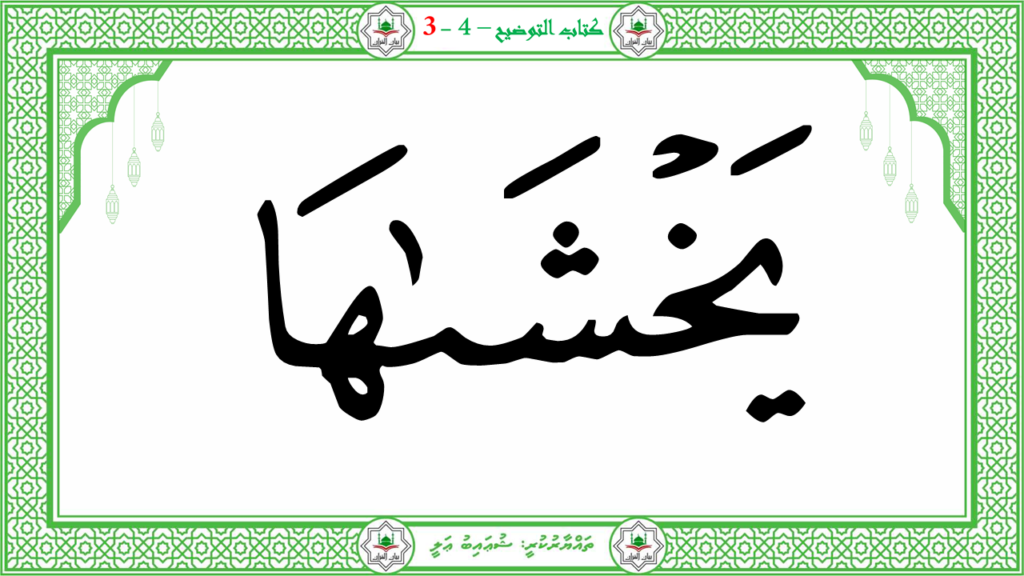 كتاب التوضيح – 4 - 3
يَخْشَىٰهَا
ތައްޔާރުކުރީ: ޝުޢައިބު ޢަލީ